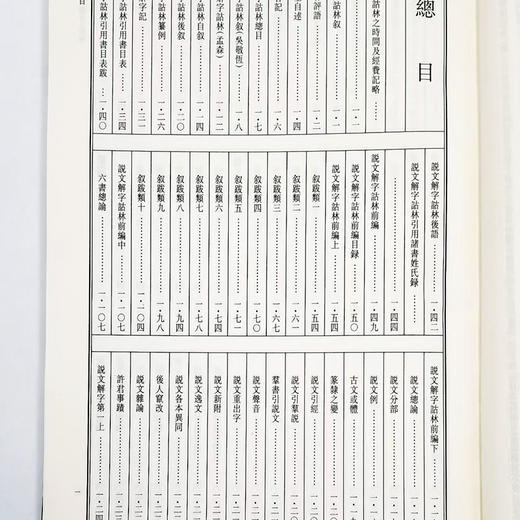 總目
詁林之時間及經費記略……一·一
詁林叙……一·一
評語……一·二
自述……一·四
詁林總目……一·七
詁林叙(吳敬恆)……一·八
字詁林(孟森)……一·一二
詁林自叙……一·一四
詁林後叙……一·二〇
詁林纂例……一·二六
字記……一·三一
字詁林引用書目表……一·三四
字詁林引用書目表跋……一·四〇
説文解字詁林後語……一·四二
説文解字詁林引用諸書姓氏録……
……一·四四
説文解字詁林前編……一·四九
説文解字詁林前編目録……一·五〇
説文解字詁林前編上……一·五四
叙跋類一……一·五四
叙跋類二……一·六一
叙跋類三……一·六七
叙跋類四……一·七〇
叙跋類五……一·七一
叙跋類六……一·七四
叙跋類七……一·七八
叙跋類八……一·九四
叙跋類九……一·九八
叙跋類十……一·一〇四
説文解字詁林前編中……一·一〇七
六書總論……一·一〇七
説文解字詁林前編下……
説文總論……
説文分部……
説文例……
古文或體……
篆隸之變……
説文引經……
説文引羣説……
羣書引説文……
説文聲音……
説文重出字……
説文新附……
説文逸文……
説文各本異同……
後人竄改……
説文雜論……
許君事蹟……
説文解字第一上……
一